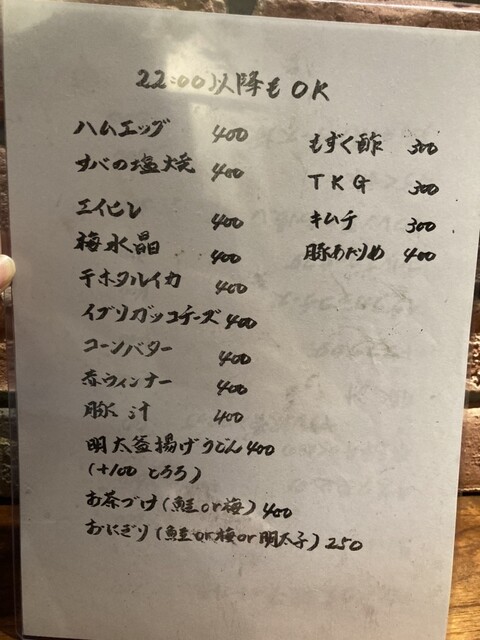 22:00以降もOK
ハムエッグ 400
すバの塩焼 400
エイヒレ 400
梅水晶 400
干ホタルイカ 400
イブリガッコチーズ 400
コーンバター 400
赤ウィンナー 400
豚汁 400
明太釜揚げうどん 400
(+100 とろろ)
お茶づけ(鮭or梅) 400
おにぎり(鮭or梅or明太子) 250
もずく酢 300
TKG 300
キムチ 300
豚あたりめ 400